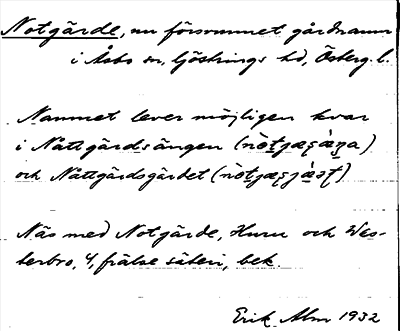 Notgärde, nu försvunnet gårdnamn
i Åsbo sn, Göstrings hd, Österg. l.
Namnet lever möjligen kvar
i Nattgärdsängen
och Nattgärdsgärdet
Näs med Notgärde, Hunn och Wes-
terbro, 4, frälse säteri, bek.
Erik Alm 1932